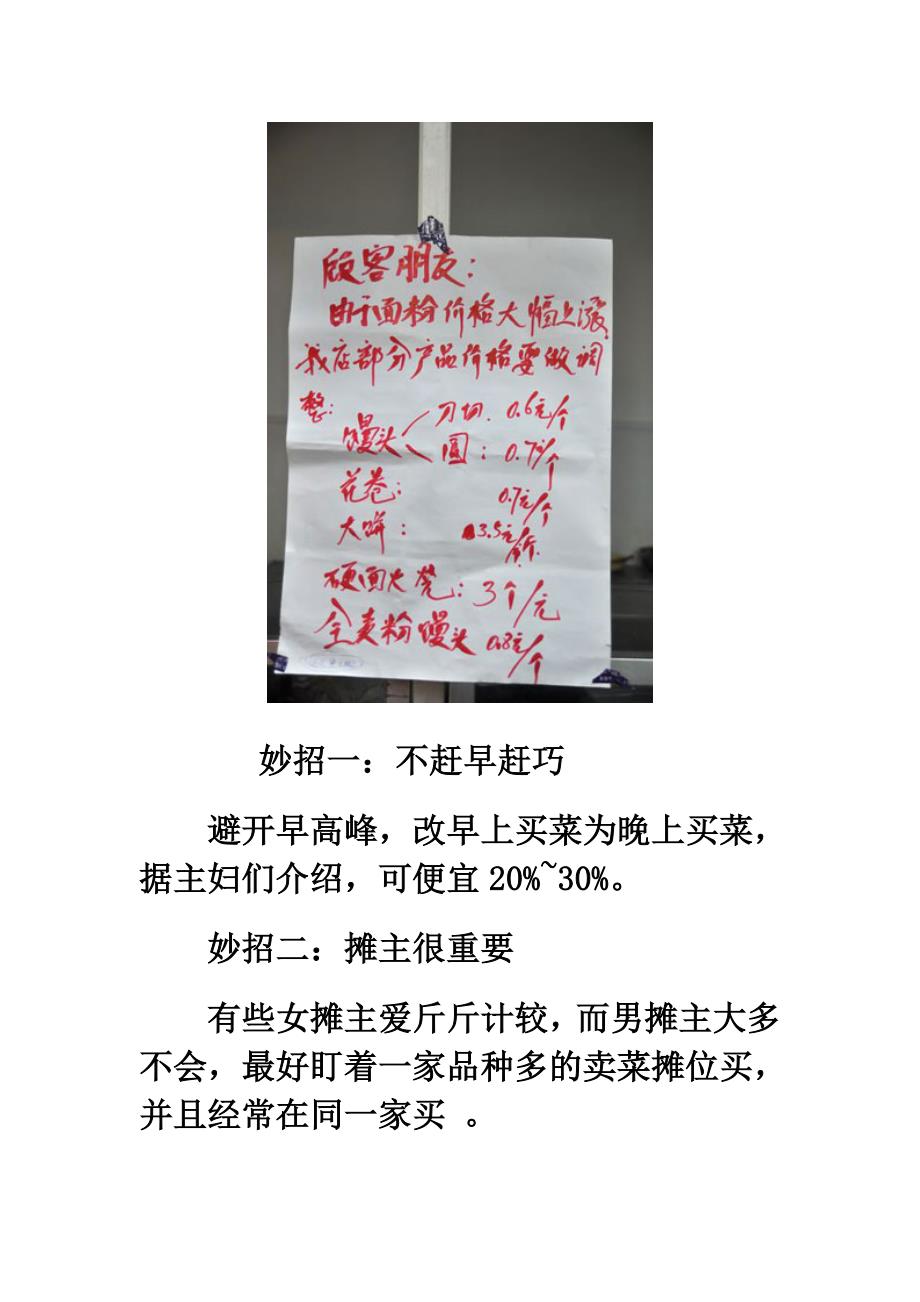 顾客朋友：
由于面粉价格大幅上涨
我店部分产品价格要做调
整：
馒头 刀切. 0.6元/个
圆：0.7元/个
花卷：0.7元/个
大饼：3.5元/斤.
硬面大凳：3个/元
全麦粉馒头 0.8元/个
妙招一：不赶早赶巧
避开早高峰，改早上买菜为晚上买菜，
据主妇们介绍，可便宜20%~30%。
妙招二：摊主很重要
有些女摊主爱斤斤计较，而男摊主大多
不会，最好盯着一家品种多的卖菜摊位买，
并且经常在同一家买 。